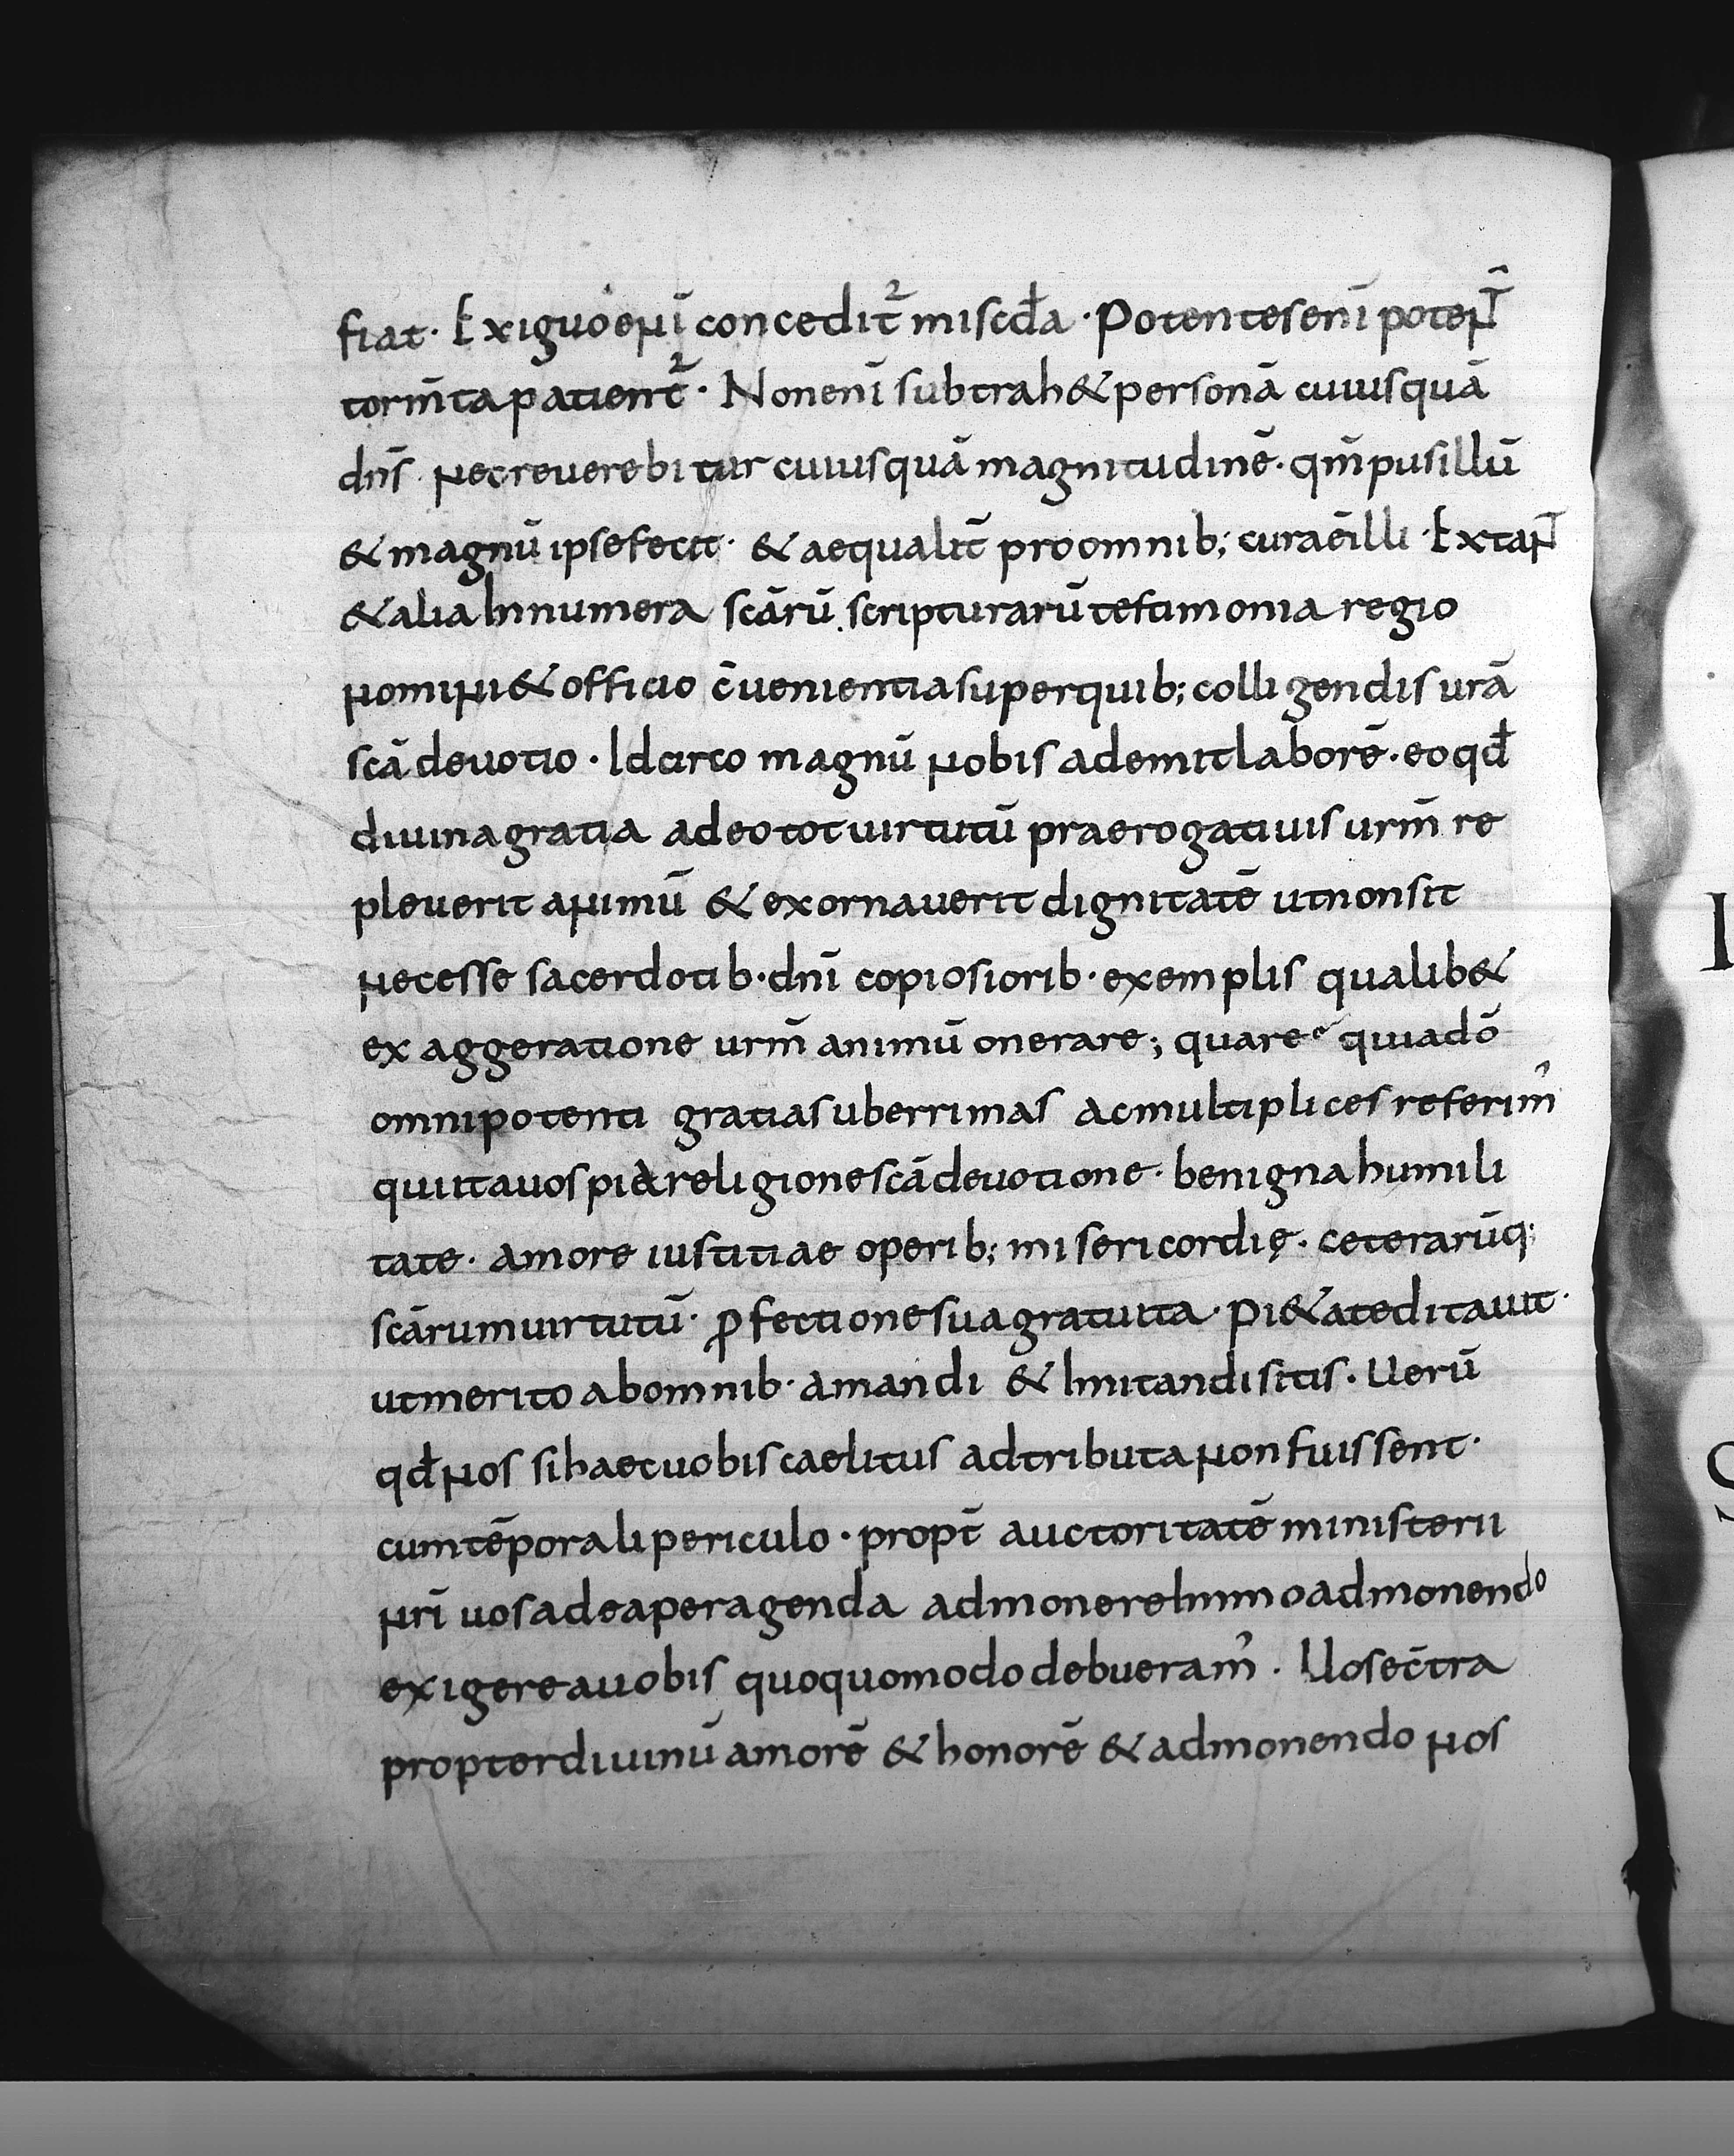 fiat· Exiguo enī concedit̄ᷣ miscd̄a · Potentes enī potent̄
torm̄ta patient̄ᷣ · Non enī subtrah& personā cuiusquā
dn̄s nec reuerebitur cuiusquā magnitudinē · qm̄ pusillū
& magnū ipse fecit · & aequalit̄ pro omnib; cura ē illi · Extant̄
& alia Innumera scārū scripturarū testimonia regio
nomini & officio c̄uenientia super quib; colligendis urā
scā deuotio · Idcirco magnū nobis ademit laborē · eo qd̄
diuina gratia adeo tot uirtutū praerogatiuis urm̄ re
pleuerit animū & exornauerit dignitatē ut non sit
necesse sacerdotib· dnī copiosiorib· exemplis qualib&
exaggeratione urm̄ animū onerare; quare quia dō
omnipotenti gratias uberrimas ac multiplices referim᾽
qui ita uos pia religione scā deuotione · benigna humili
tate · amore iustitiae operib; misericordię · ceterarūq;
scārum uirtutū · ꝓfectione sua gratuita · pi&ate ditauit ·
ut merito ab omnib· amandi & Imitandi sitis · Uerū
qd̄ nos si haec uobis caelitus adtributa non fuissent ·
cum tēporali periculo · propt̄ auctoritatē ministerii
nrī uos ad ea peragenda admonere Immo admonendo
exigere a uobis quoquomodo debueram᾽ · Uos ec̄tra
propter diuinū amorē & honorē & admonendo nos